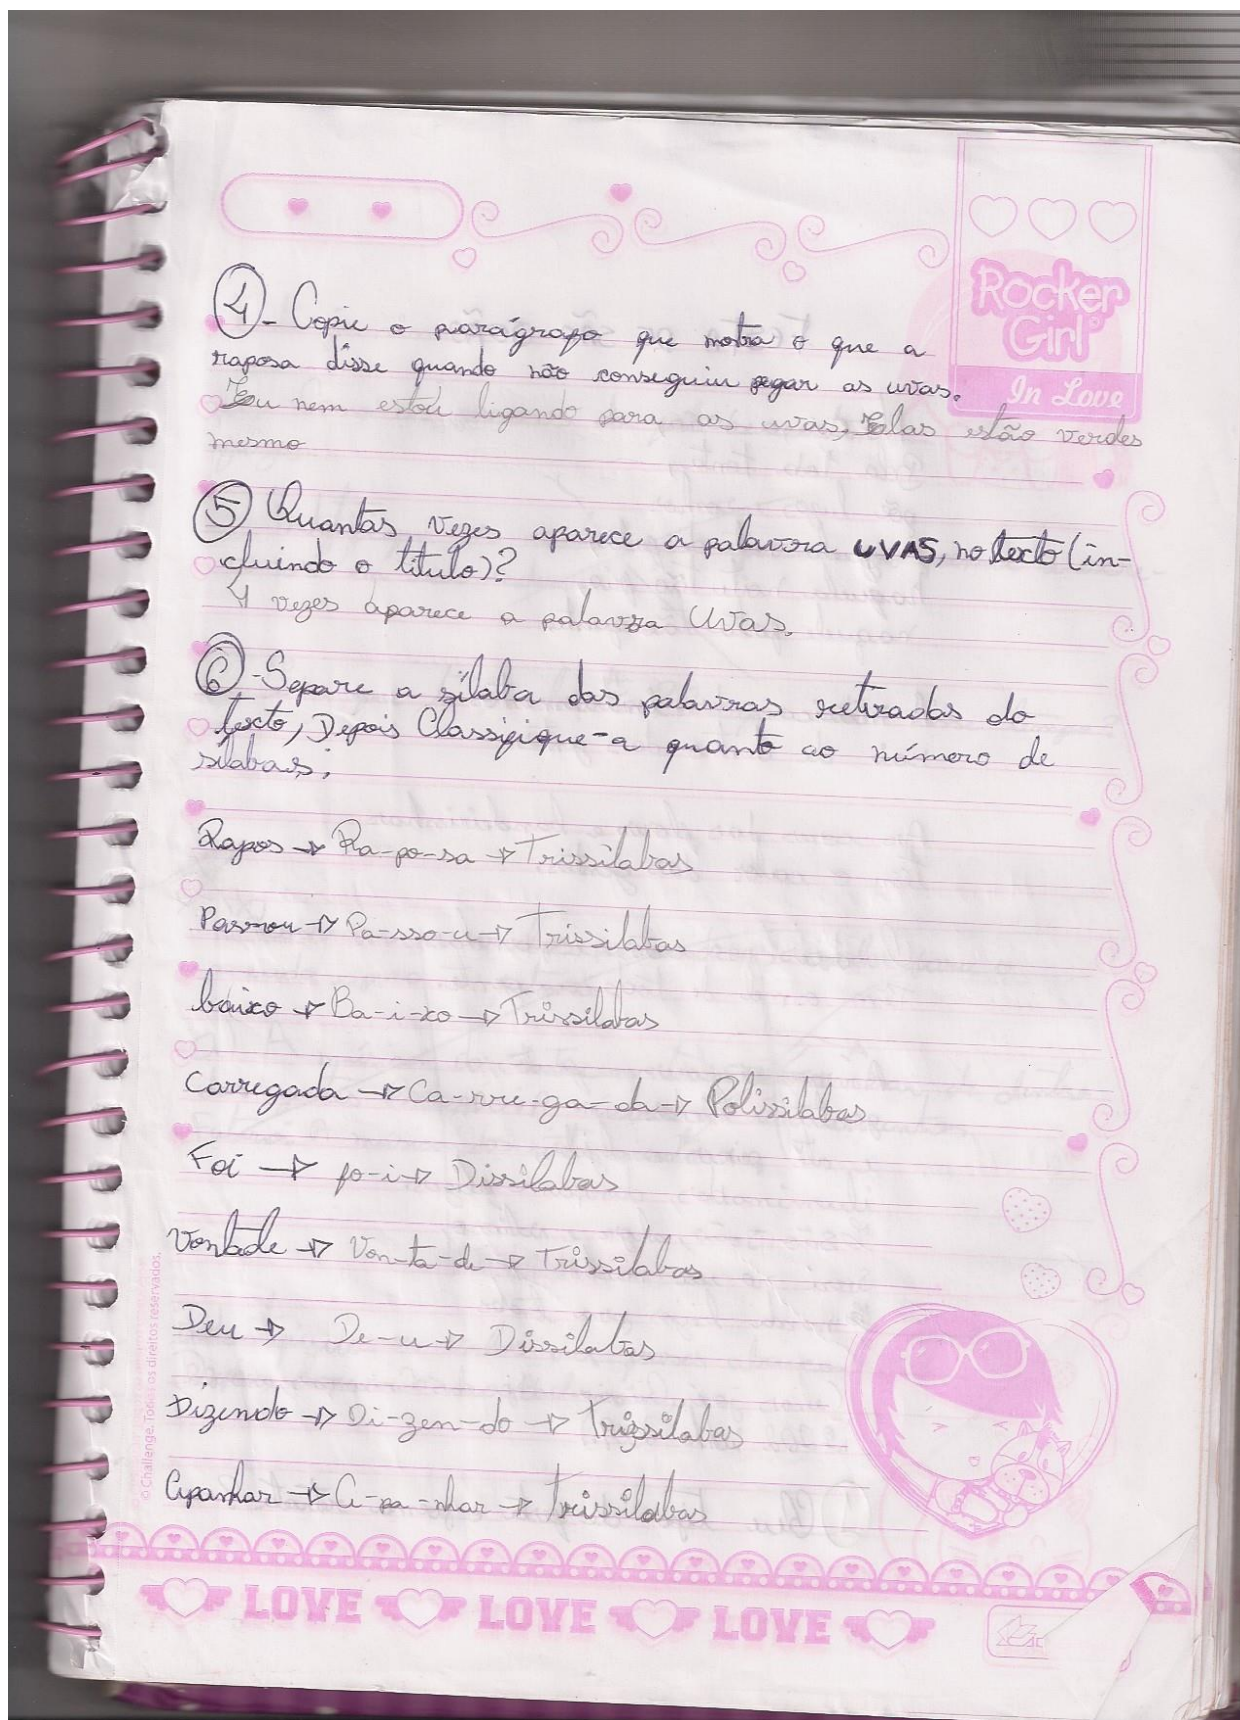 Rocker
Girl
In Love
4- Copie o parágrafo que motra o que a
raposa disse quando não conseguiu pegar as uvas.
Eu nem estou ligando para as uvas, Elas estão verdes
mesmo
5 Quantas vezes aparece a palavra UVAS, no texto (in-
cluindo o titulo)?
4 vezes aparece a palavra Uvas.
6-Separe a silaba das palavras retiradas do
texto, Depois Classifique-a quanto ao número de
silabas;
Rapos → Ra-po-sa → Trissilabas
Passou → Pa-sso-u → Trissilabas
baixo → Ba-i-xo → Trissilabas
Carregada → Ca-rre-ga-da → Polissilabas
Foi → fo-i → Dissilabas
Vontade → Von-ta-de → Trissilabas
Deu → De-u → Dissilabas
Dizendo → Di-zen-do → Trissilabas
Apanhar → A-pa-nhar → Trissilabas
© Challenge. Todos os direitos reservados.
LOVE LOVE LOVE